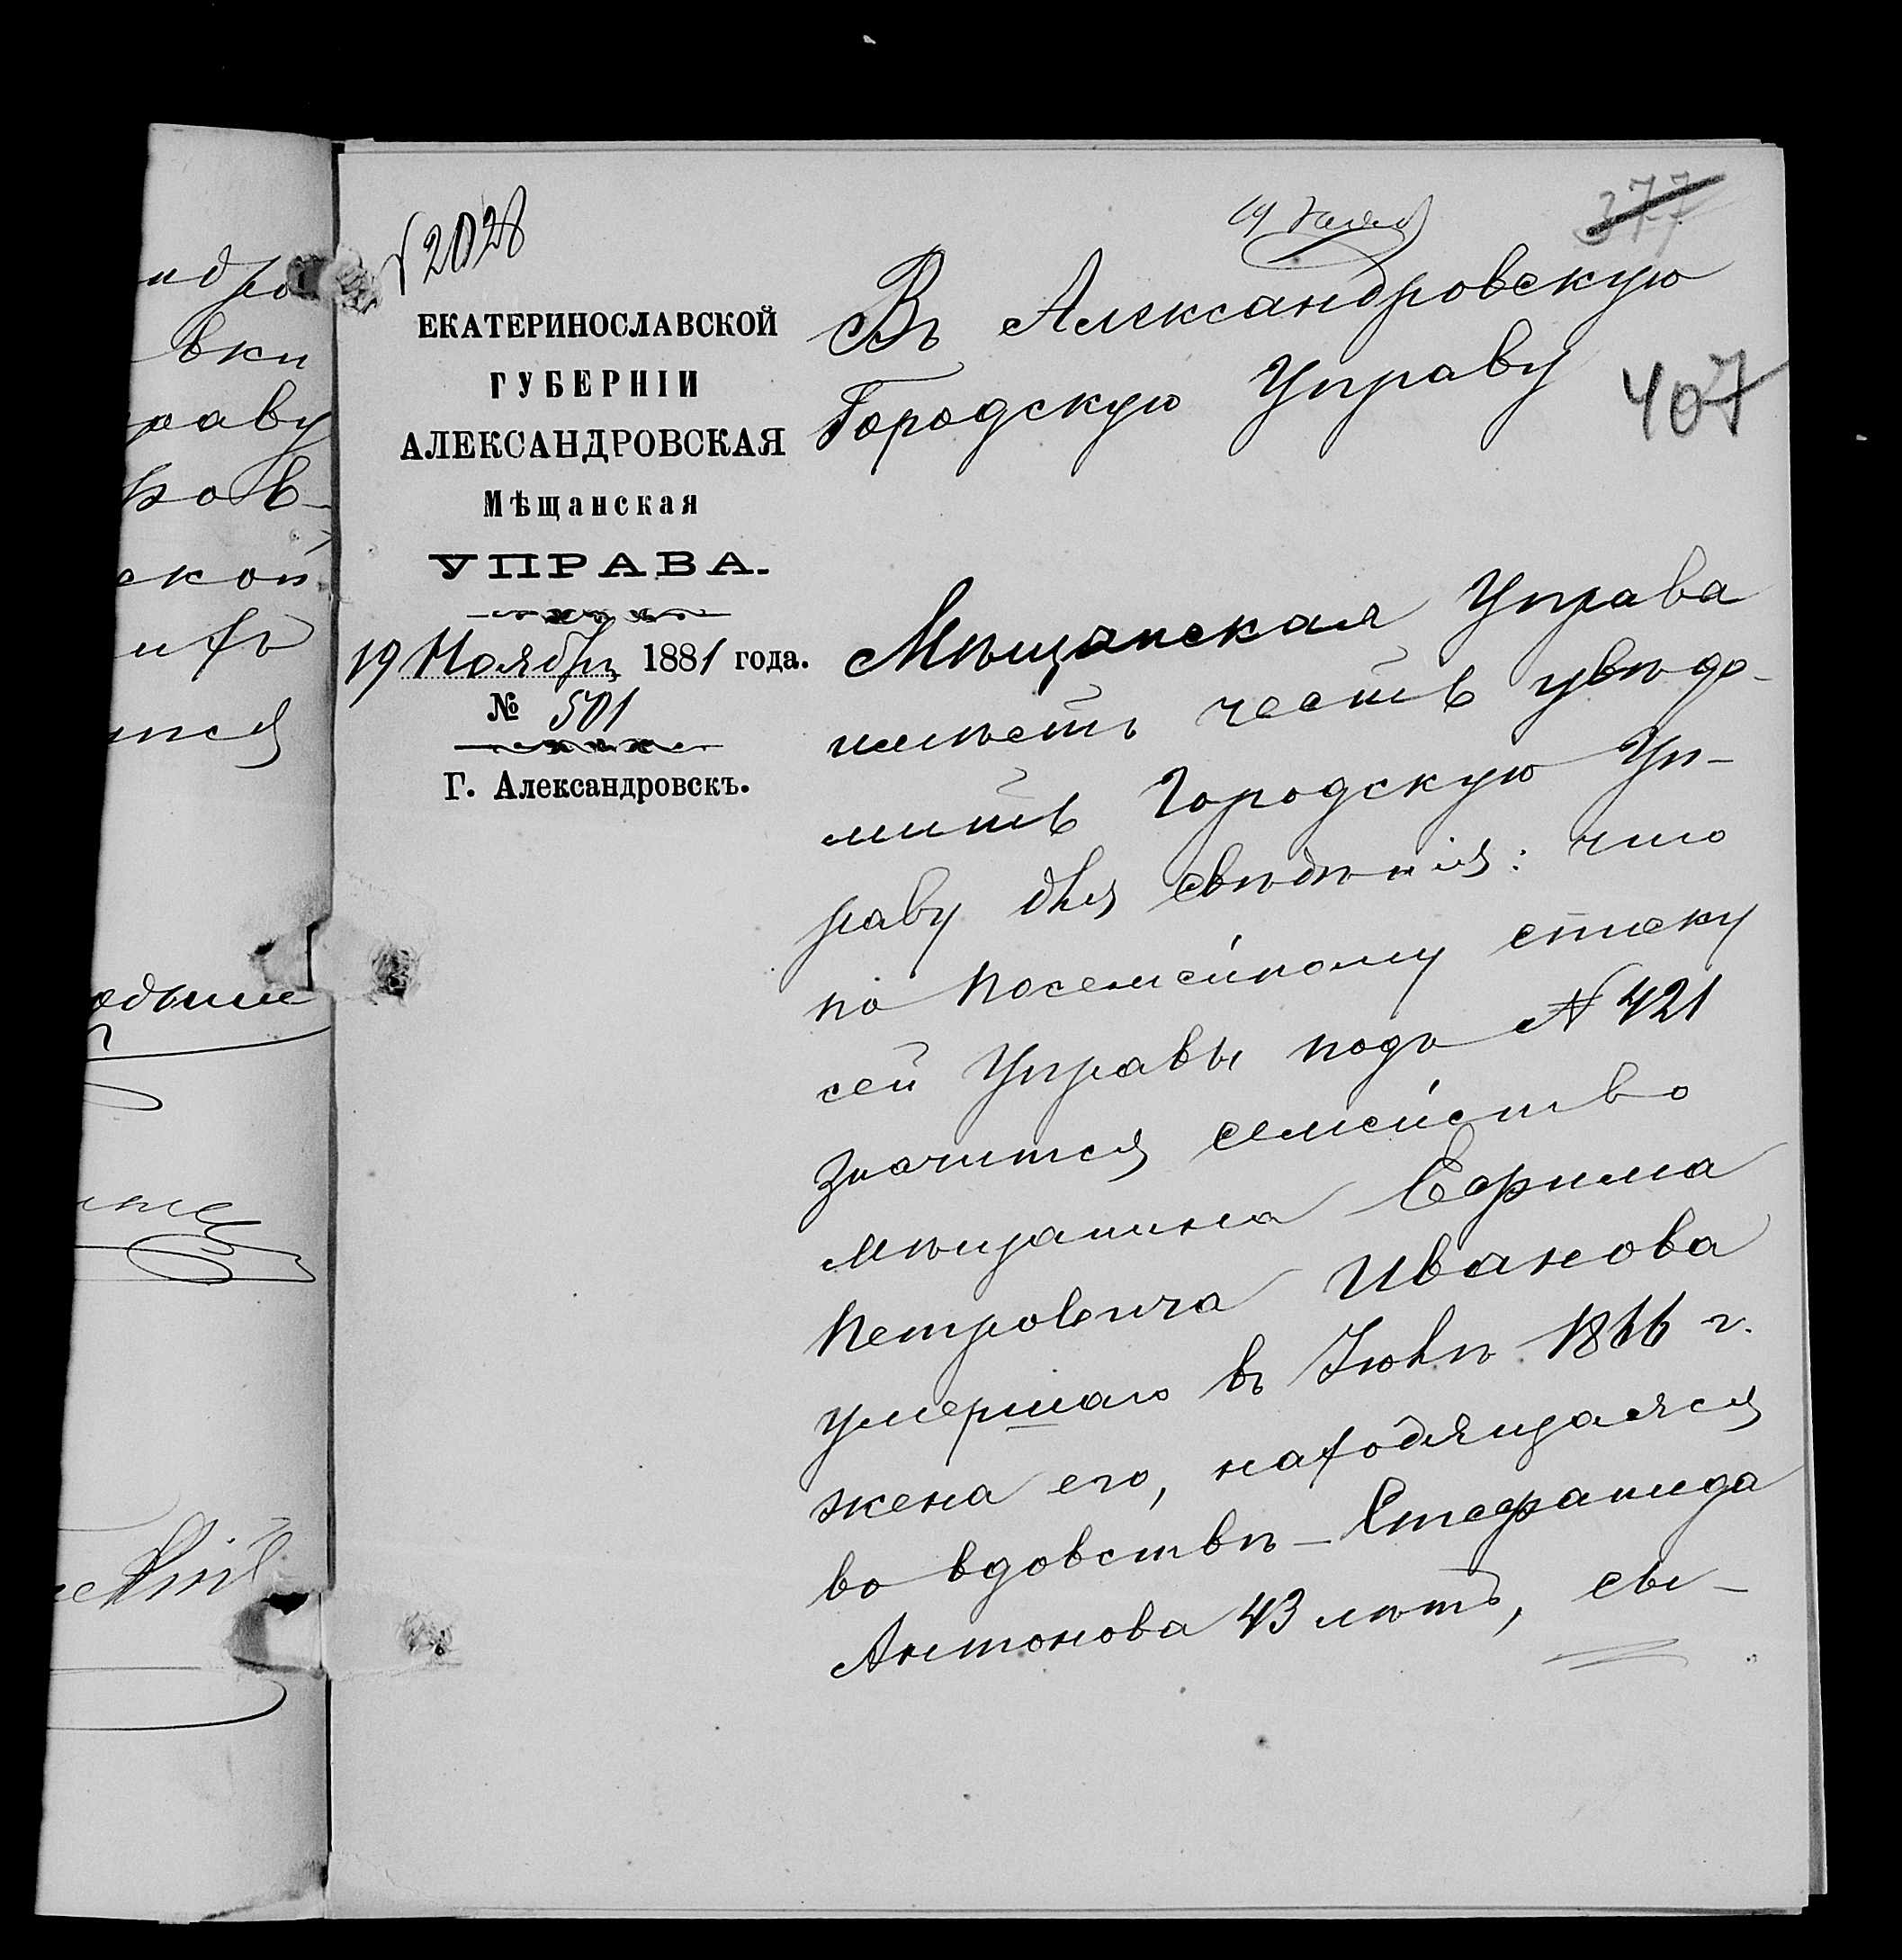 № 2028
19 Нояб
377
407
ЕКАТЕРИНОСЛАВСКОЙ
ГУБЕРНІИ
АЛЕКСАНДРОВСКАЯ
Мѣщанская
УПРАВА.
19 Ноября 1881 года.
№ 501
Г. Александровскъ.
Въ Александровскую
Городскую Управу
Мѣщанская Управа
имѣетъ честь увѣдо-
мить Городскую Уп-
раву для свѣдѣнія: что
по посемейному списку
сей Управы подъ № 421
значится семейство
мѣщанина Ефима
Петровича Иванова
умершаго въ Іюлѣ 1866 г.
жена его, находящаяся
во вдовствѣ – Стефанида
Антонова 43 лѣтъ, сы-